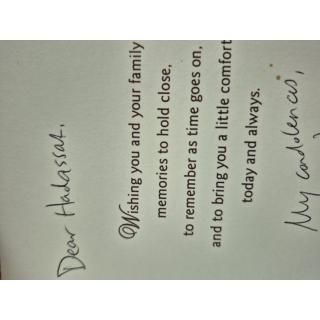 Dear Hadassat,
Wishing you and your family
memories to hold close,
to remember as time goes on,
and to bring you a little comfort
today and always.
My condolences,